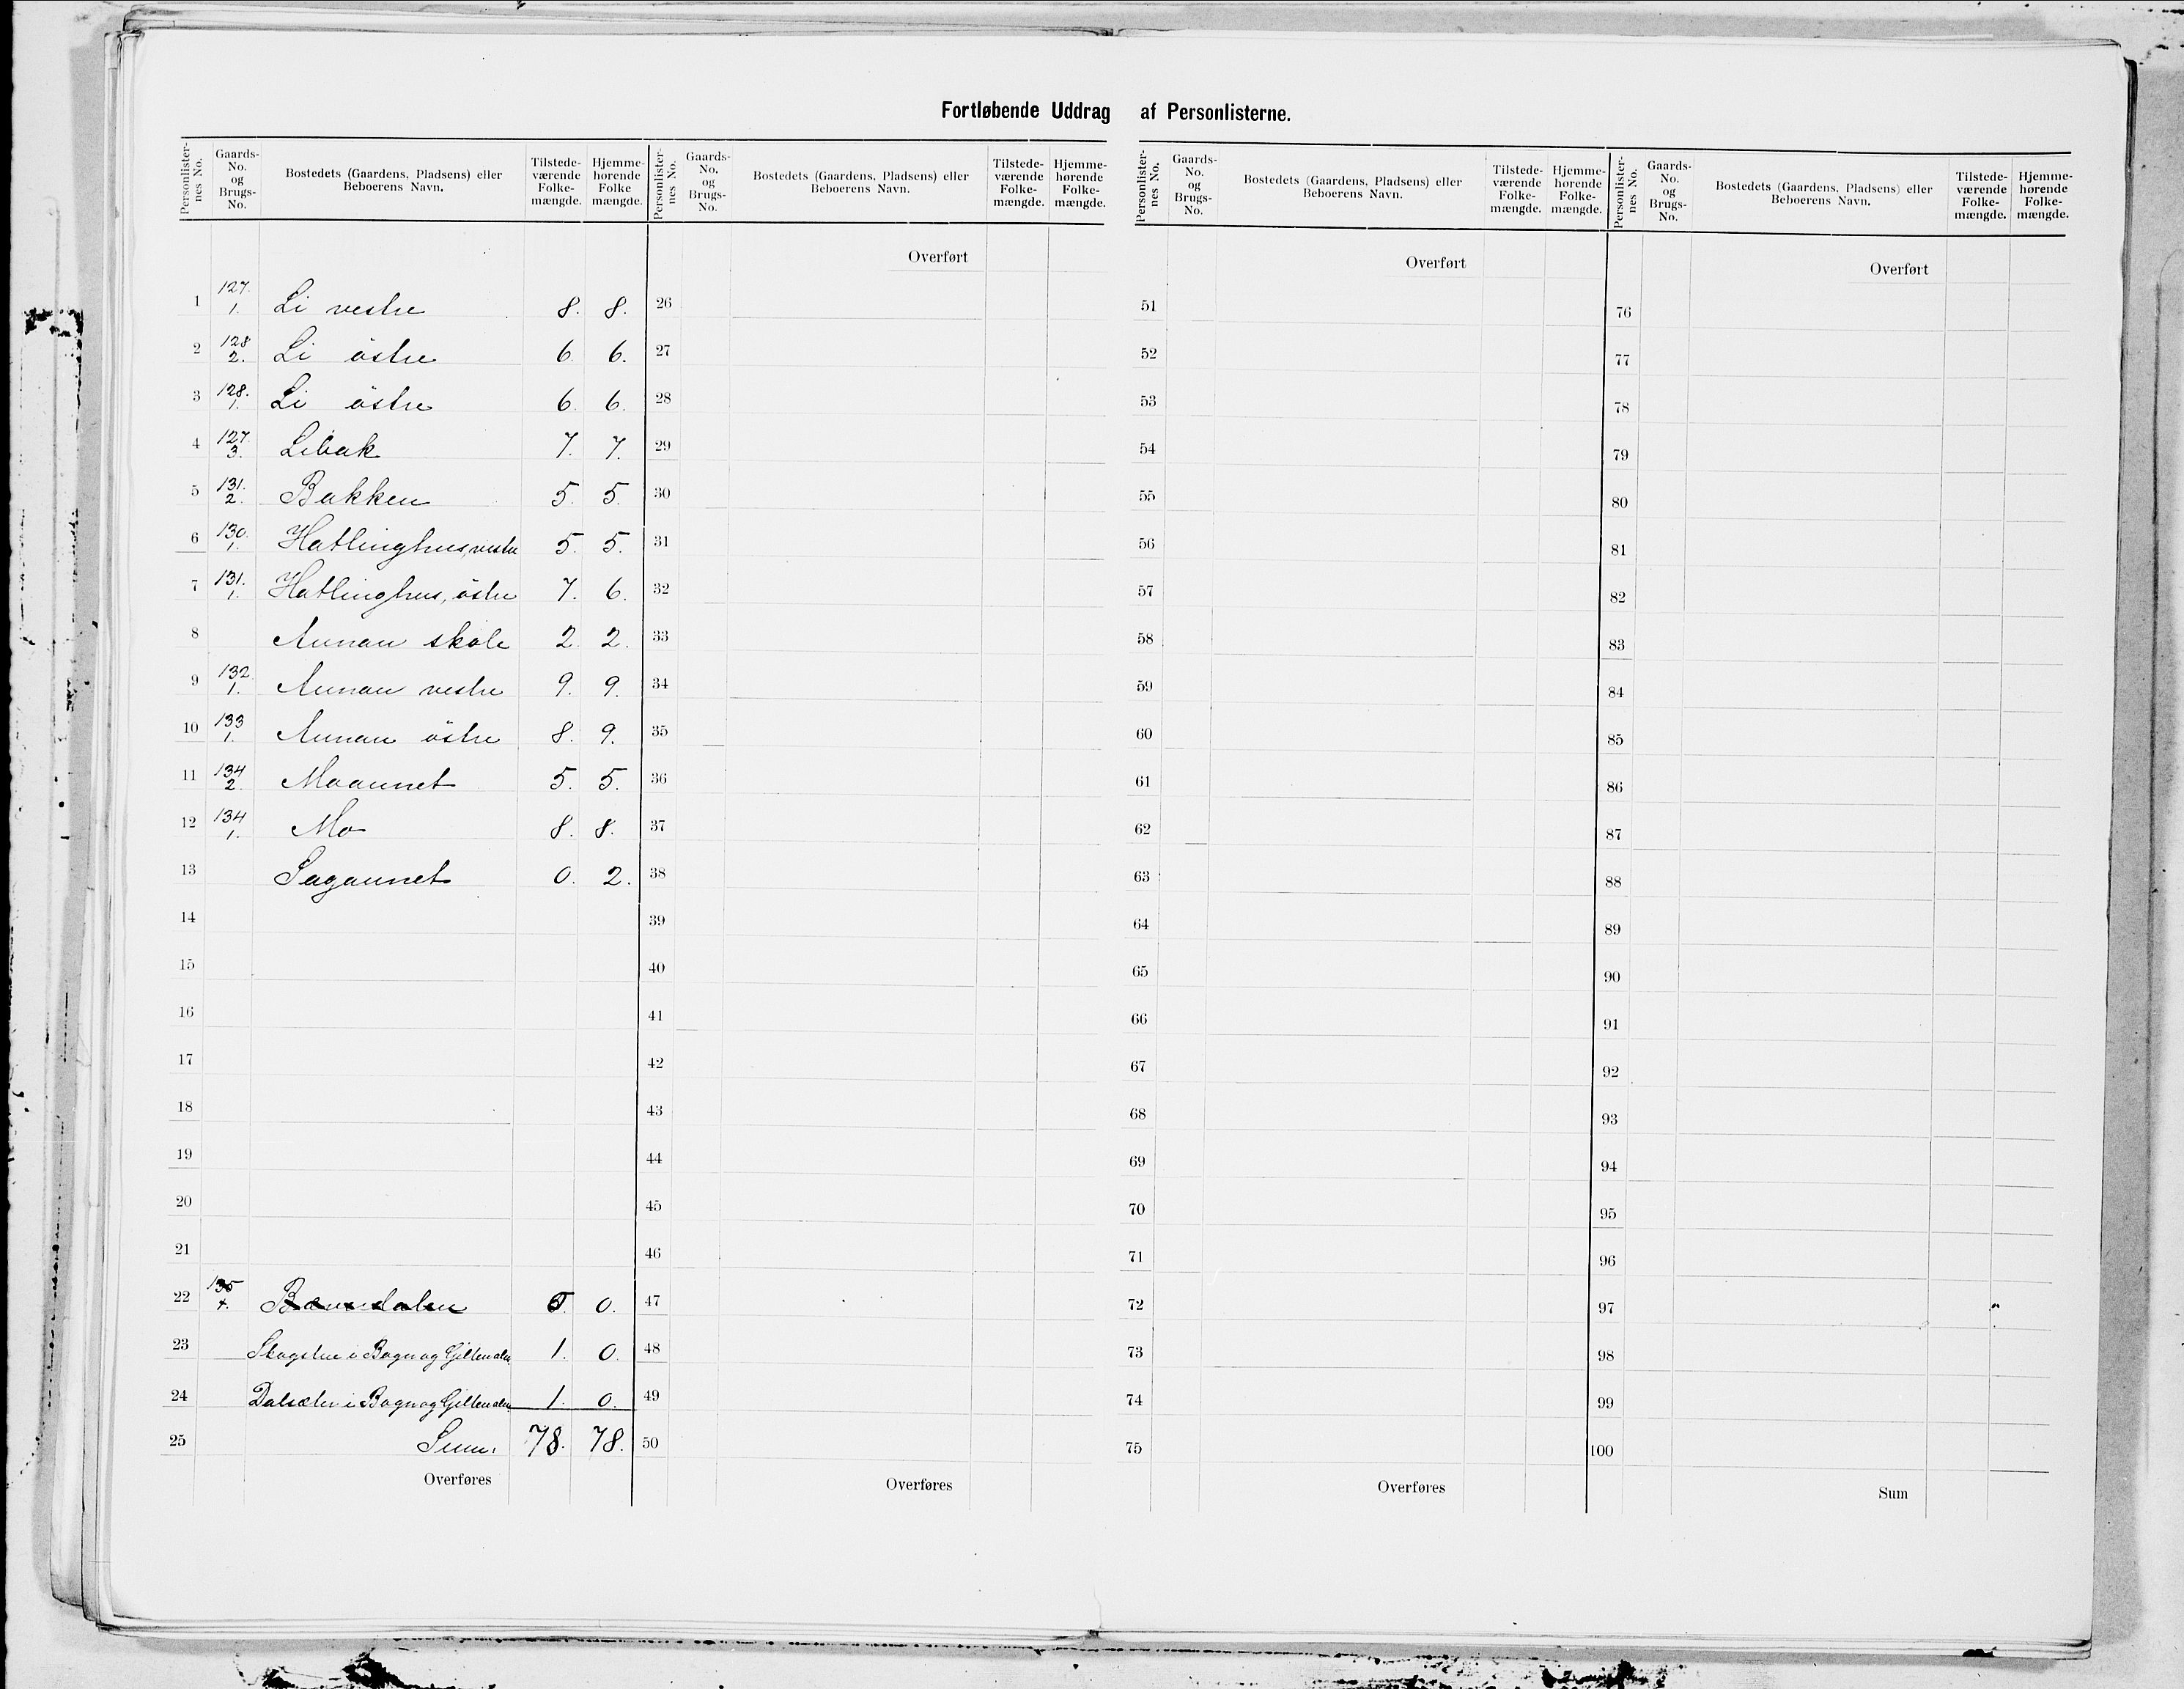 Fortløbende Uddrag af Personlisterne.
Personlister-nes No. Gaards-No. og Brugs-No. Bostedets (Gaardens, Pladsens) eller Beboerens Navn. Tilstede-værende Folke-mængde. Hjemme-hørende Folke mængde.
1 127. 1. Li vestre 8. 8.
2 128 2. Li östre 6. 6.
3 128. 1. Li östre 6. 6.
4 127. 3. Libak 7. 7.
5 131. 2. Bakken 5. 5.
6 130. 1. Hatlinghus, vestre 5. 5.
7 131. 1. Hatlinghus, östre 7. 6.
8 Aunan skole 2. 2.
9 132. 1. Aunan vestre 9. 9.
10 133 1. Aunan östre 8. 9.
11 134 2. Moaunet 5. 5.
12 134 1. Mo 8. 8.
13 Sagaunet 0. 2.
14
15
16
17
18
19
20
21
22 135 0.
23 Skogstue i Bogn og Gilten alm. 1. 0.
24 Dalsæter i Bogn og Gilten alm. 1. 0.
25 Sum. 78. 78.
Overføres
Personlister-nes No. Gaards-No. og Brugs-No. Bostedets (Gaardens, Pladsens) eller Beboerens Navn. Tilstede-værende Folke-mængde. Hjemme-hørende Folke-mængde.
Overført
26
27
28
29
30
31
32
33
34
35
36
37
38
39
40
41
42
43
44
45
46
47
48
49
50
Overføres
Personlister-nes No. Gaards-No. og Brugs-No. Bostedets (Gaardens, Pladsens) eller Beboerens Navn. Tilstede-værende Folke-mængde. Hjemme-hørende Folke-mængde.
Overført
51
52
53
54
55
56
57
58
59
60
61
62
63
64
65
66
67
68
69
70
71
72
73
74
75
Overføres
Personlister-nes No. Gaards-No. og Brugs-No. Bostedets (Gaardens, Pladsens) eller Beboerens Navn. Tilstede-værende Folke-mængde. Hjemme-hørende Folke-mængde.
Overført
76
77
78
79
80
81
82
83
84
85
86
87
88
89
90
91
92
93
94
95
96
97
98
99
100
Sum